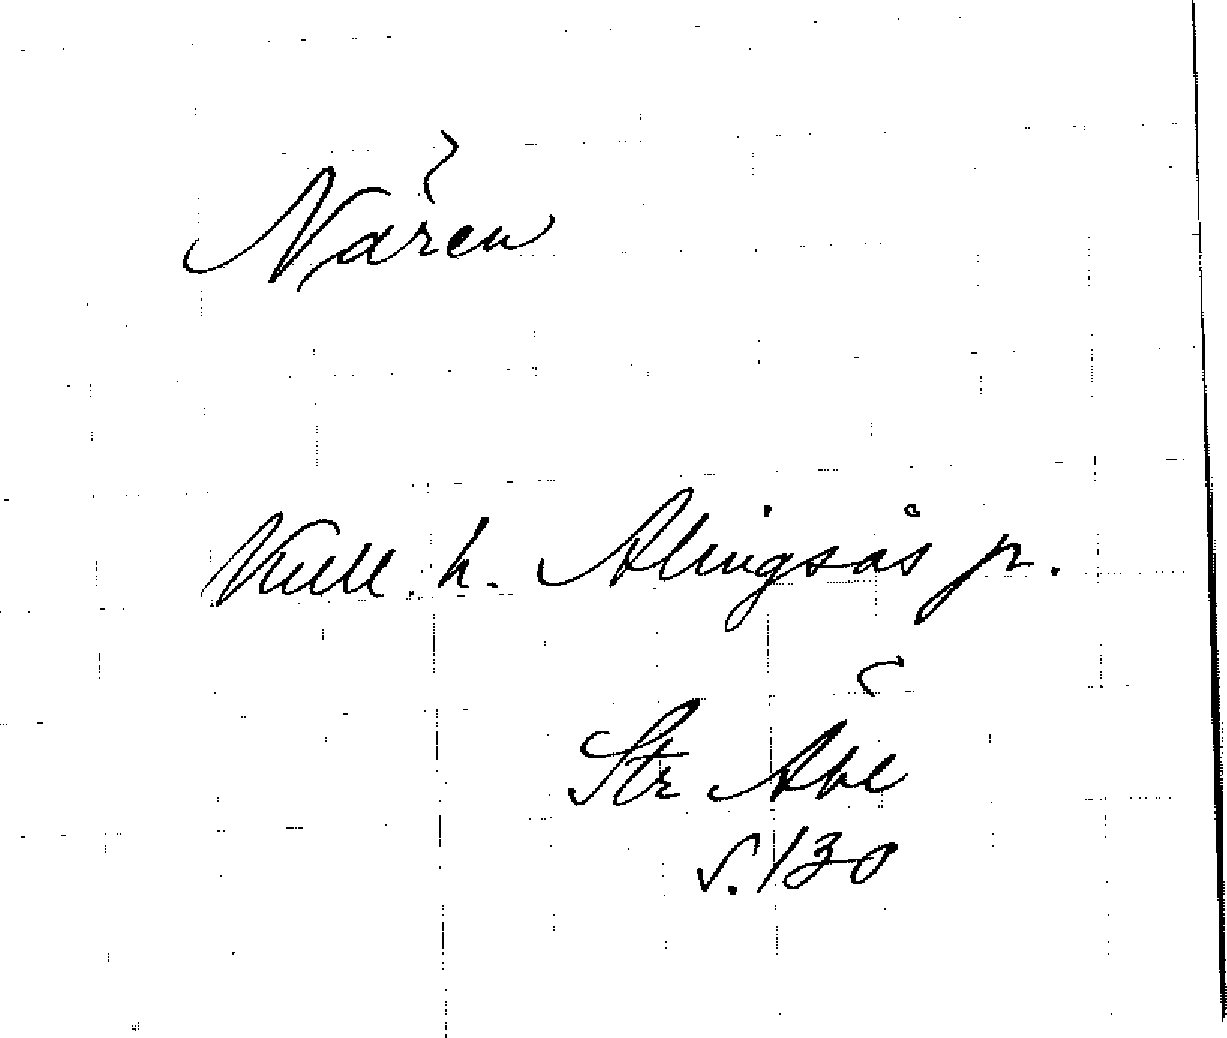 Nären
Kull. h. Alingsås pr.
Str Ale
s. 130